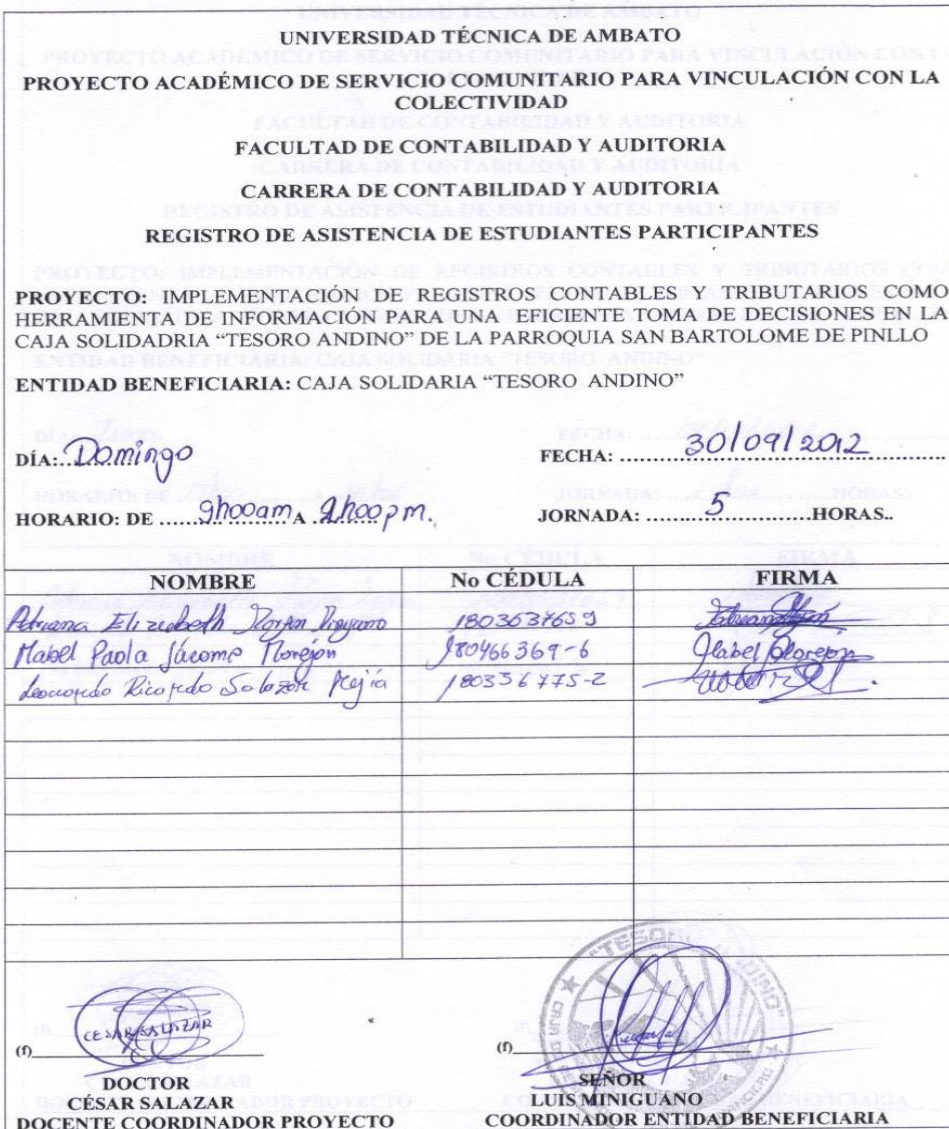 UNIVERSIDAD TÉCNICA DE AMBATO
PROYECTO ACADÉMICO DE SERVICIO COMUNITARIO PARA VINCULACIÓN CON LA
COLECTIVIDAD
FACULTAD DE CONTABILIDAD Y AUDITORIA
CARRERA DE CONTABILIDAD Y AUDITORIA
REGISTRO DE ASISTENCIA DE ESTUDIANTES PARTICIPANTES
PROYECTO: IMPLEMENTACIÓN DE REGISTROS CONTABLES Y TRIBUTARIOS COMO
HERRAMIENTA DE INFORMACIÓN PARA UNA EFICIENTE TOMA DE DECISIONES EN LA
CAJA SOLIDADRIA “TESORO ANDINO” DE LA PARROQUIA SAN BARTOLOME DE PINLLO
ENTIDAD BENEFICIARIA: CAJA SOLIDARIA “TESORO ANDINO”
DÍA: Domingo FECHA: 30/09/2012
HORARIO: DE 9h00am A 2h00pm. JORNADA: 5 HORAS..
NOMBRE No CÉDULA FIRMA
Adriana Elizabeth 1803637659
Mabel Paola Jácome Morejón 180466369-6 Mabel Morejón
Leonardo Ricardo Salazar Mejía 180336775-2
"TESORO ANDINO"
CESAR SALAZAR
(f) (f)
DOCTOR SEÑOR
CÉSAR SALAZAR LUIS MINIGUANO
DOCENTE COORDINADOR PROYECTO COORDINADOR ENTIDAD BENEFICIARIA